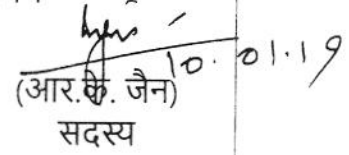 10.01.19
(आर.के. जैन)
सदस्य